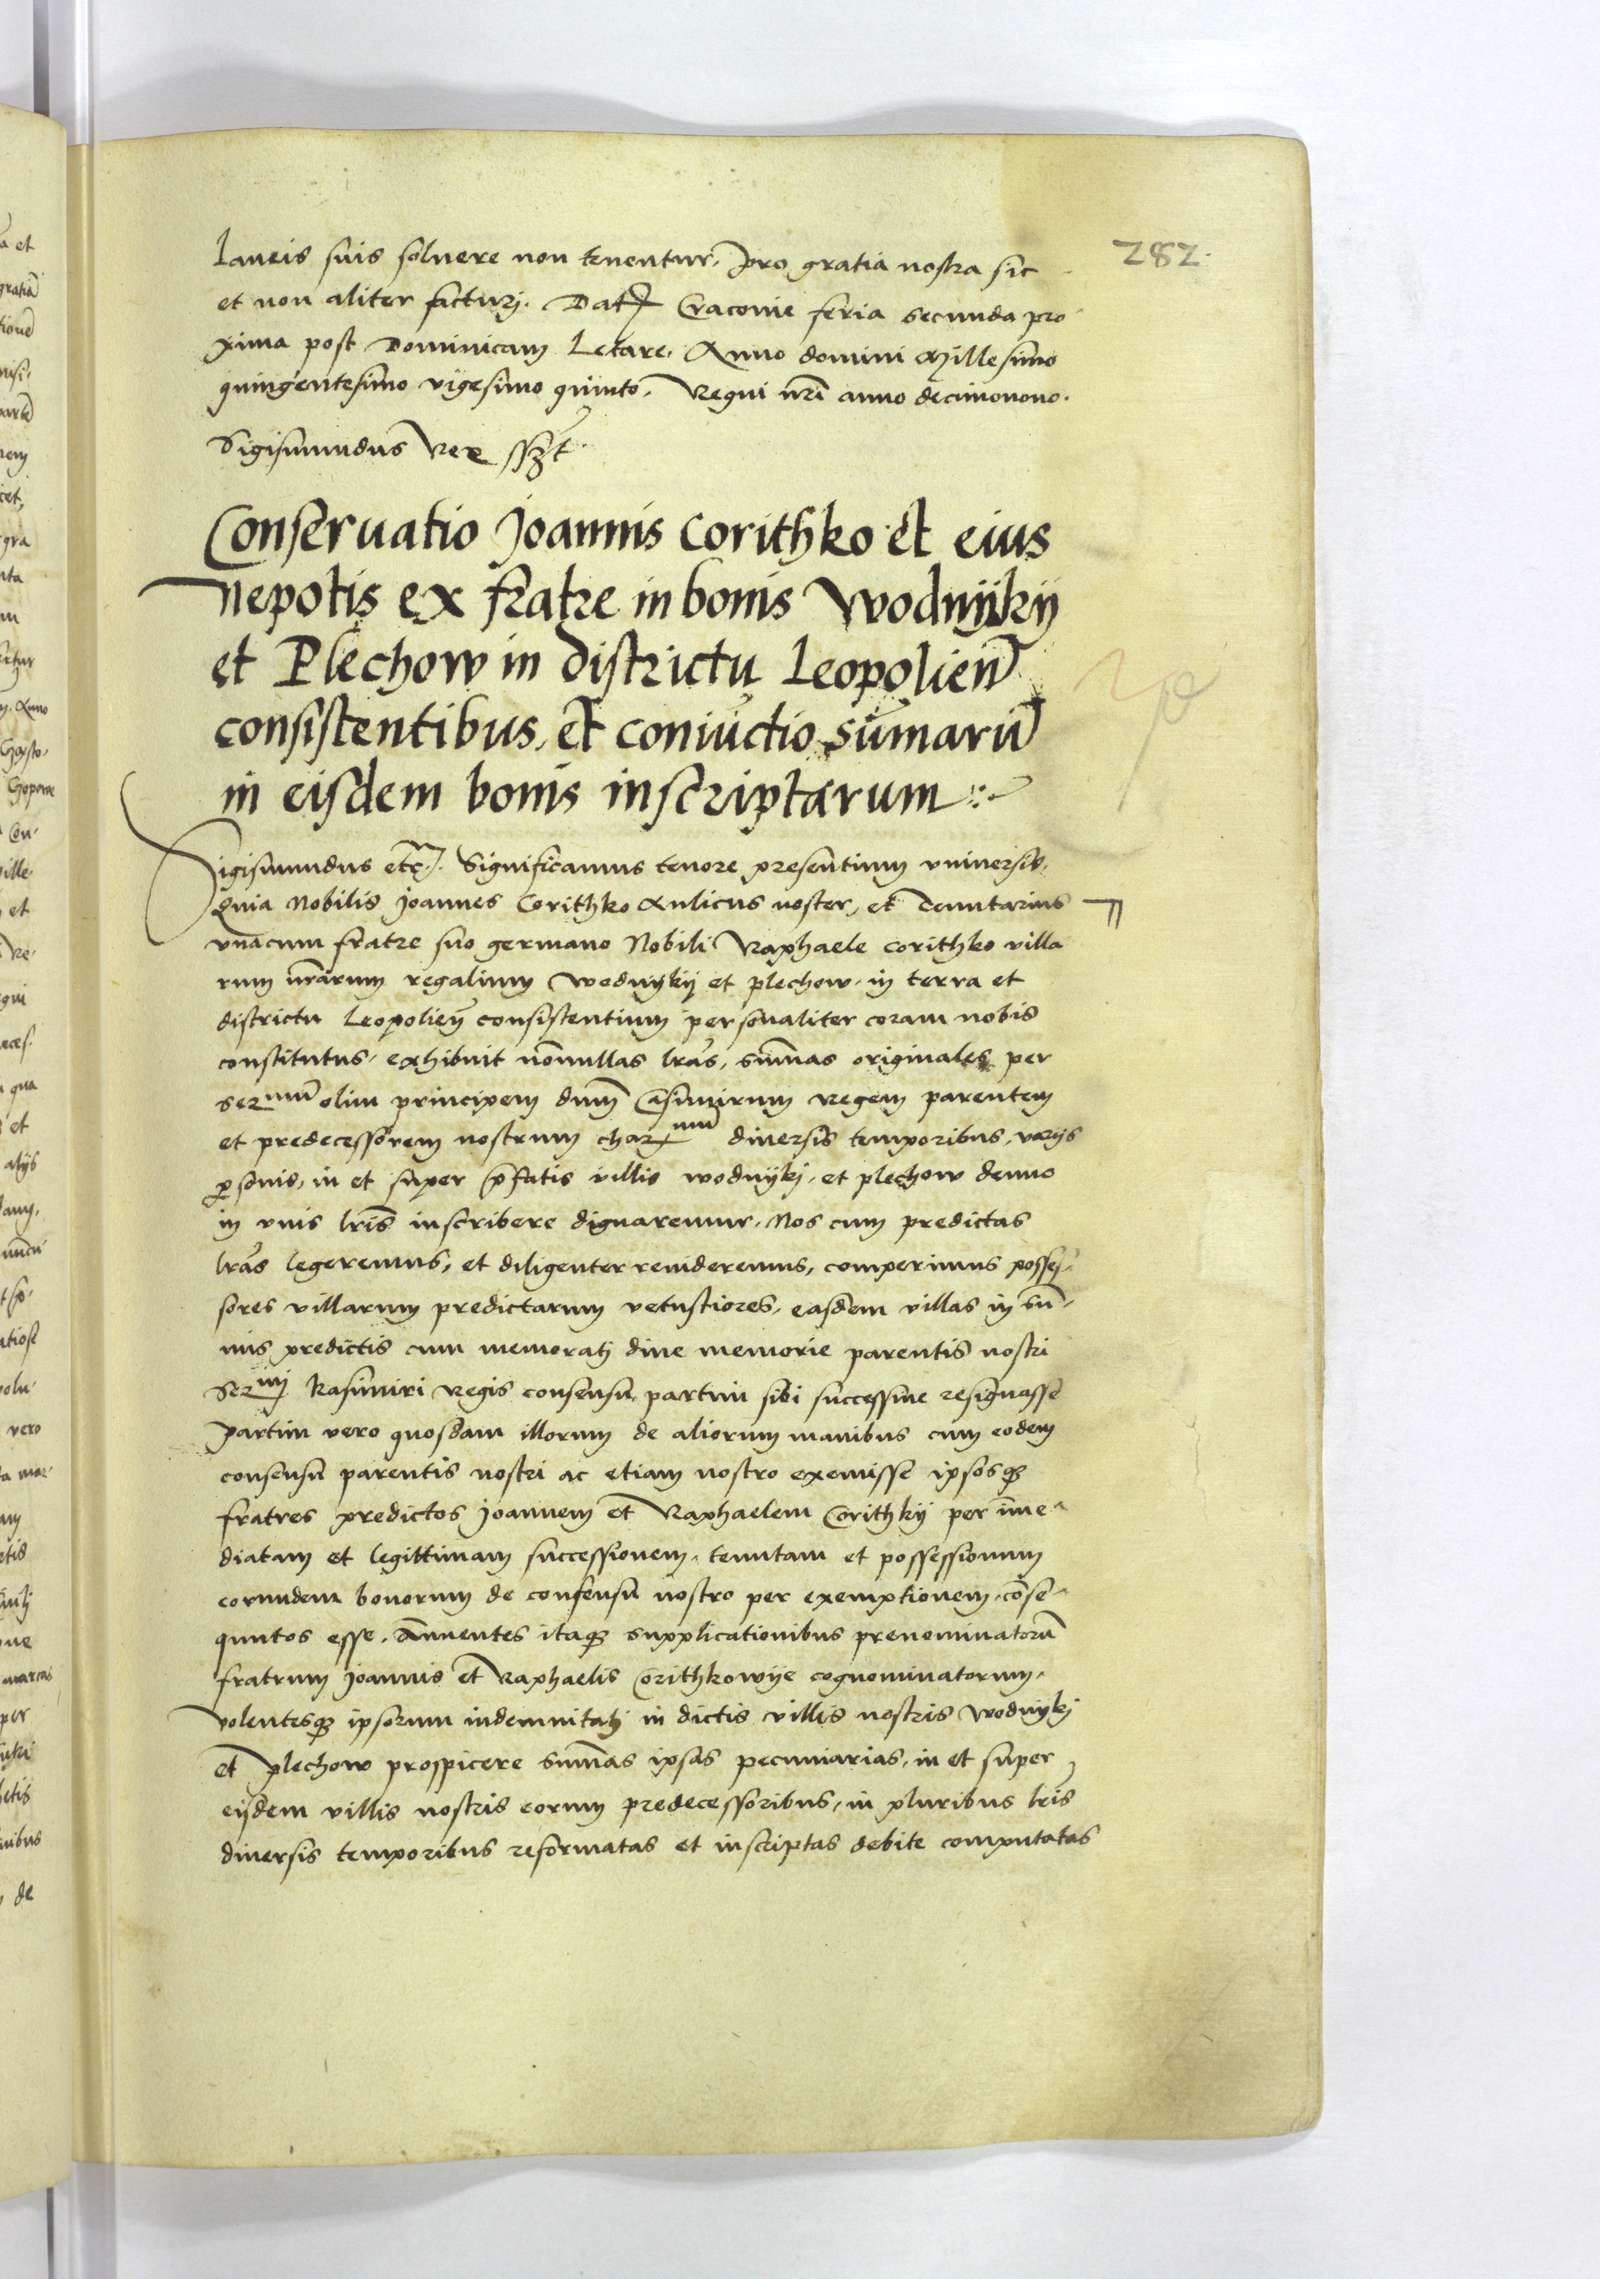 282.
laneis suis soluere non tenentur, pro gratia nostra sic
et non aliter facturi. Dat Cracovie feria secunda pro
xima post Dominicam Letare, Anno domini Millesimo
quingentesimo vigesimo quinto, Regni nri anno decimonono.
Sigismundus Rex sszt.
Conseruatio Joannis Corithko et eius
nepotis ex fratre in bonis Wodnijkij
et Plechow in districtu Leopolien
consistentibus, et coniuctio sumaru
in eisdem bonis inscriptarum
Sigismundus etc. Significamus tenore presentium vniuersis,
Quia Nobilis Joannes Corithko Aulicus noster, et Tenutarius
vnacum fratre suo germano Nobili Raphaele corithko villa
rum nrarum regalium Wodnijkij et plechow, in terra et
districtu Leopolien consistentium personaliter coram nobis
constitutus, exhibuit nonnullas lras, summas originales per
sermum olim principem dnum Casimirum regem parentem
et predecessorem nostrum charmum diuersis temporibus, varijs
psonis, in et super pfatis villis wodnijkj, et plechow denuo
in vnis lris inscribere dignaremur, Nos cum predictas
lras legeremus, et diligenter reuideremus, comperimus posses,
sores villarum predictarum vetustiores, easdem villas in sum,
mis predictis cum memorati diue memorie parentis nostri
Sermi Kasimiri Regis consensu, partim sibi successiue resignasse
Partim vero quosdam illorum de aliorum manibus cum eodem
consensu parentis nostri ac etiam nostro exemisse ipsosq
fratres predictos Joannem et Raphaelem Corithkij per ime-
diatam et legittimam successionem, tenutam et possessionum
eorundem bonorum de consensu nostro per exemptionem, conse-
quutos esse. Annuentes itaq supplicationibus prenominatoru
fratrum Joannis et Raphaelis Corithkowije cognominatorum,
volentesq ipsorum indemnitati in dictis villis nostris wodnijkj
et plechow prospicere summas ipsas pecuniarias, in et super
eisdem villis nostris eorum predecessoribus, in pluribus lris
diuersis temporibus reformatas et inscriptas debite computatas